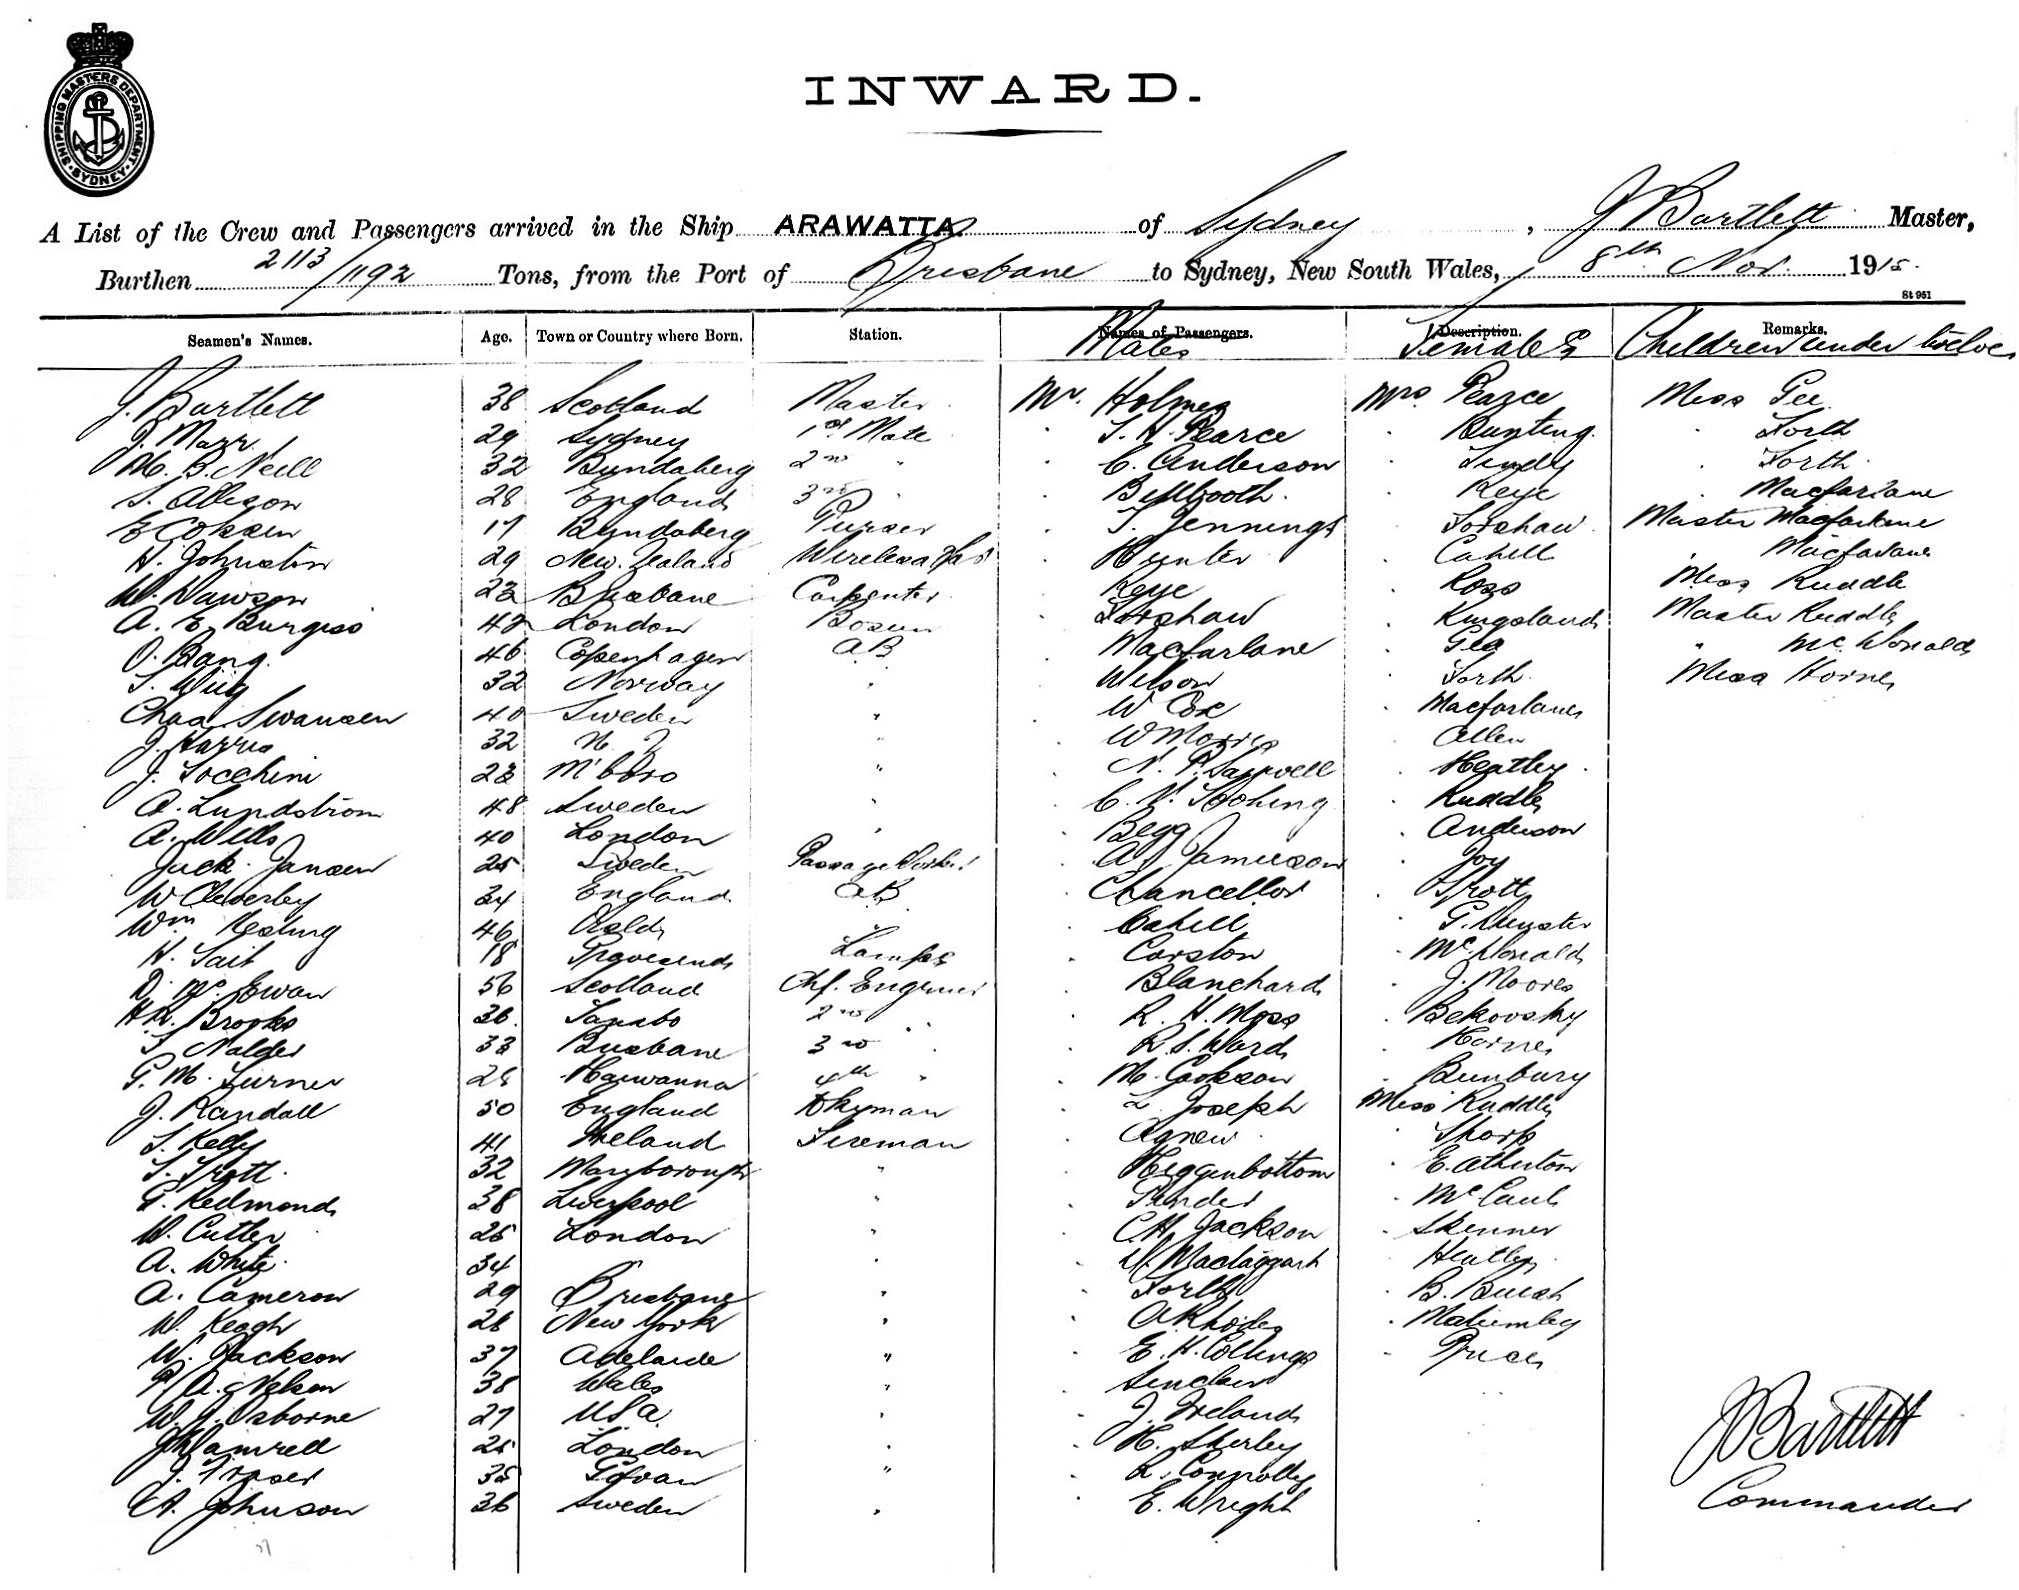 SHIPPING MASTERS DEPARTMENT. SYDNEY.
INWARD.
A List of the Crew and Passengers arrived in the Ship ARAWATTA of Sydney, J Bartlett Master,
Burthen 2113/1192 Tons, from the Port of Brisbane to Sydney, New South Wales, 8th Nov. 1915.
St 951
Seamen's Names. Age. Town or Country where Born. Station. Names of Passengers. Description. Remarks.
Males Females Children under twelve
J. Bartlett 38 Scotland Master Mr. Holmes Mrs Pearce Miss Gee
J. Marr 29 Sydney 1st Mate " T. H. Pearce " Bunting " Forth
M. B. Neill 32 Bundaberg 2nd " " C. Anderson " " Forth
S. Allison 28 England 3rd " " " Keye " Macfarlane
E Coksen 17 Bundaberg Purser " T. Jennings " Forshaw Master Macfarlane
H. Johnston 29 New Zealand Wireless " Hunter " Cahill " Macfarlane
W. Dawson 23 Brisbane Carpenter " Keye " Ross Miss Ruddle
A. E. Burgiss 42 London Bosun " Forshaw " Kingsland Master Ruddle
O. Bang 46 Copenhagen AB " Macfarlane " Gee " McDonald
S. Wiig 32 Norway " " Wilson " Forth Miss Horne
Chas Swansen 40 Sweden " " W Cox " Macfarlane
J. Harris 32 N. Z " " W Morris " Allen
J. Socchini 23 M'boro " " N. P. " Heatley
A. Lundström 48 Sweden " " C. " Ruddle
A. Wills 40 London " " Begg " Anderson
Jack Jansen 25 Sweden " A J Jamieson " Joy
W Cleverley 34 England AB " Chancellor " Trott
Wm 46 Qsld " Cahill " G.
H. Sait 18 Gravesend Lamps " Corston " McDonald
D. McEwan 56 Scotland Chf. Engineer " Blanchard " J. Moores
Brooks 36 2nd " " R. H. Moss " Bekovsky
Nalder 33 Brisbane 3rd " " R. S. Ward " Horne
G. M. Turner 28 4th " " M. Cookson " Bunbury
J. Randall 50 England Dkyman " L. Joseph Miss Ruddle
T. Kelly 41 Ireland Fireman " Agnew " Sharp
T. Trott 32 Maryborough " " Higginbottom " E. Atherton
G. Redmond 38 Liverpool " " Pinder " McCaul
W. Cutler 25 London " " C H Jackson " Skinner
A. White 34 " " " Mactaggart " Heatley
A. Cameron 29 Brisbane " " Forth " B. Bush
W. Keogh 26 New York " " A Rhodes "
W. Jackson 37 Adelaide " " E. H. Collings " Price
A. Nelson 38 Wales " " Sinclair
W. J. Osborne 27 U.S.A. " " J. Ireland
25 London " " H. Skerley
J. Fraser 35 Govan " " R. Connolly
A. Johnson 36 Sweden " " E. Wright
J Bartlett
Commander